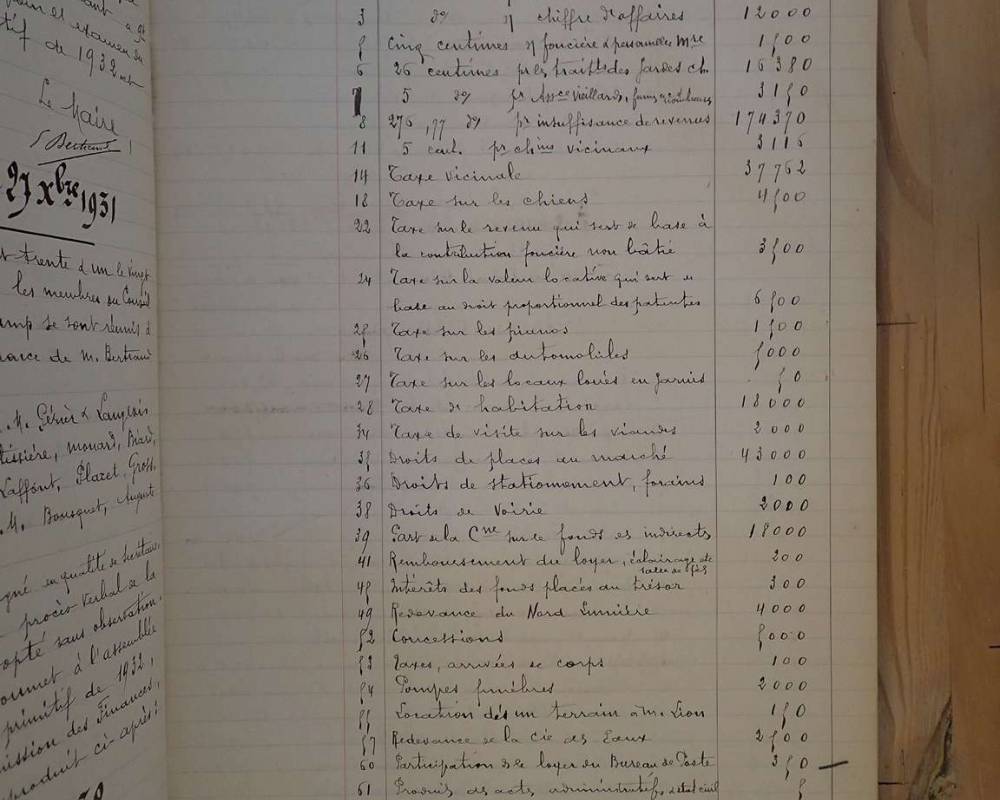 pour et examen du
tif de 1932
Le Maire
Bertrand
27 Xbre 1931
trente d un le vingt
les membres du Conseil
se sont réunis à
de M. Bertrand
M. Génèr & Langlois
Monard, Biard,
Laffont, Plazet, Gross,
M. Bousquet, Auguste
gné en qualité de
procès verbal de la
opté sans observation.
oumet à l'assemblée
primitif de 1932,
mission des Finances,
produit ci après:
3 do s/ chiffre d'affaires 12000
5 Cinq centimes s/ foncière & personnelle Mre 1500
6 26 centimes pr les traitts des Gardes ch. 16380
7 5 do pr Assce Vieillards, 3150
8 276,77 do pr insuffisance de revenus 174370
11 5 cent. pr chins vicinaux 3116
14 Taxe vicinale 37762
18 Taxe sur les chiens 4500
22 Taxe sur le revenu qui sert de base à
la contribution foncière non bâtie 3500
24 Taxe sur la valeur locative qui sert de
base au droit proportionnel des patentes 6500
25 Taxe sur les pianos 1500
26 Taxe sur les automobiles 5000
27 Taxe sur les locaux loués en garnis 50
28 Taxe d'habitation 18000
34 Taxe de visite sur les viandes 2000
35 Droits de places au marché 43000
36 Droits de stationnement, forains 100
38 Droits de Voirie 2000
39 Part de la Cne sur le fonds des indirects 18000
41 Remboursement du loyer, éclairage etc 200
45 Intérêts des fonds placés au trésor 300
49 Redevance du Nord Lumière 4000
52 Concessions 5000
53 Taxes, arrivées de corps 100
54 Pompes funèbres 2000
55 Location dès un terrain à M. Lion 150
57 Redevance de la Cie des Eaux 2500
60 Participation de le loyer du Bureau de Poste 350
61 Produits des actes administratifs & état civil 5